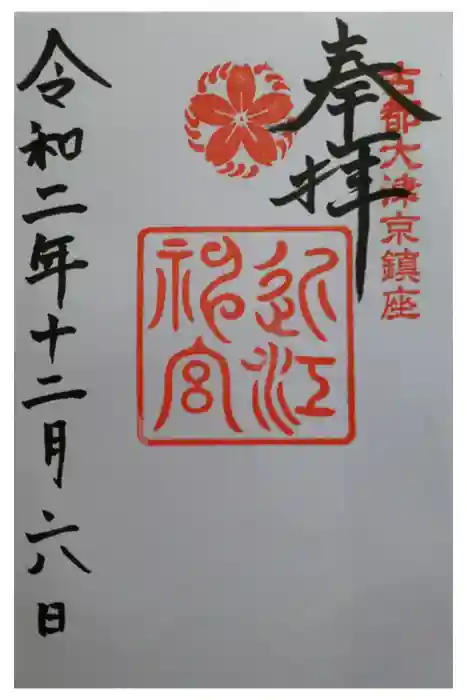 奉拝
古都大津京鎮座
近江
神宮
令和二年十二月六日